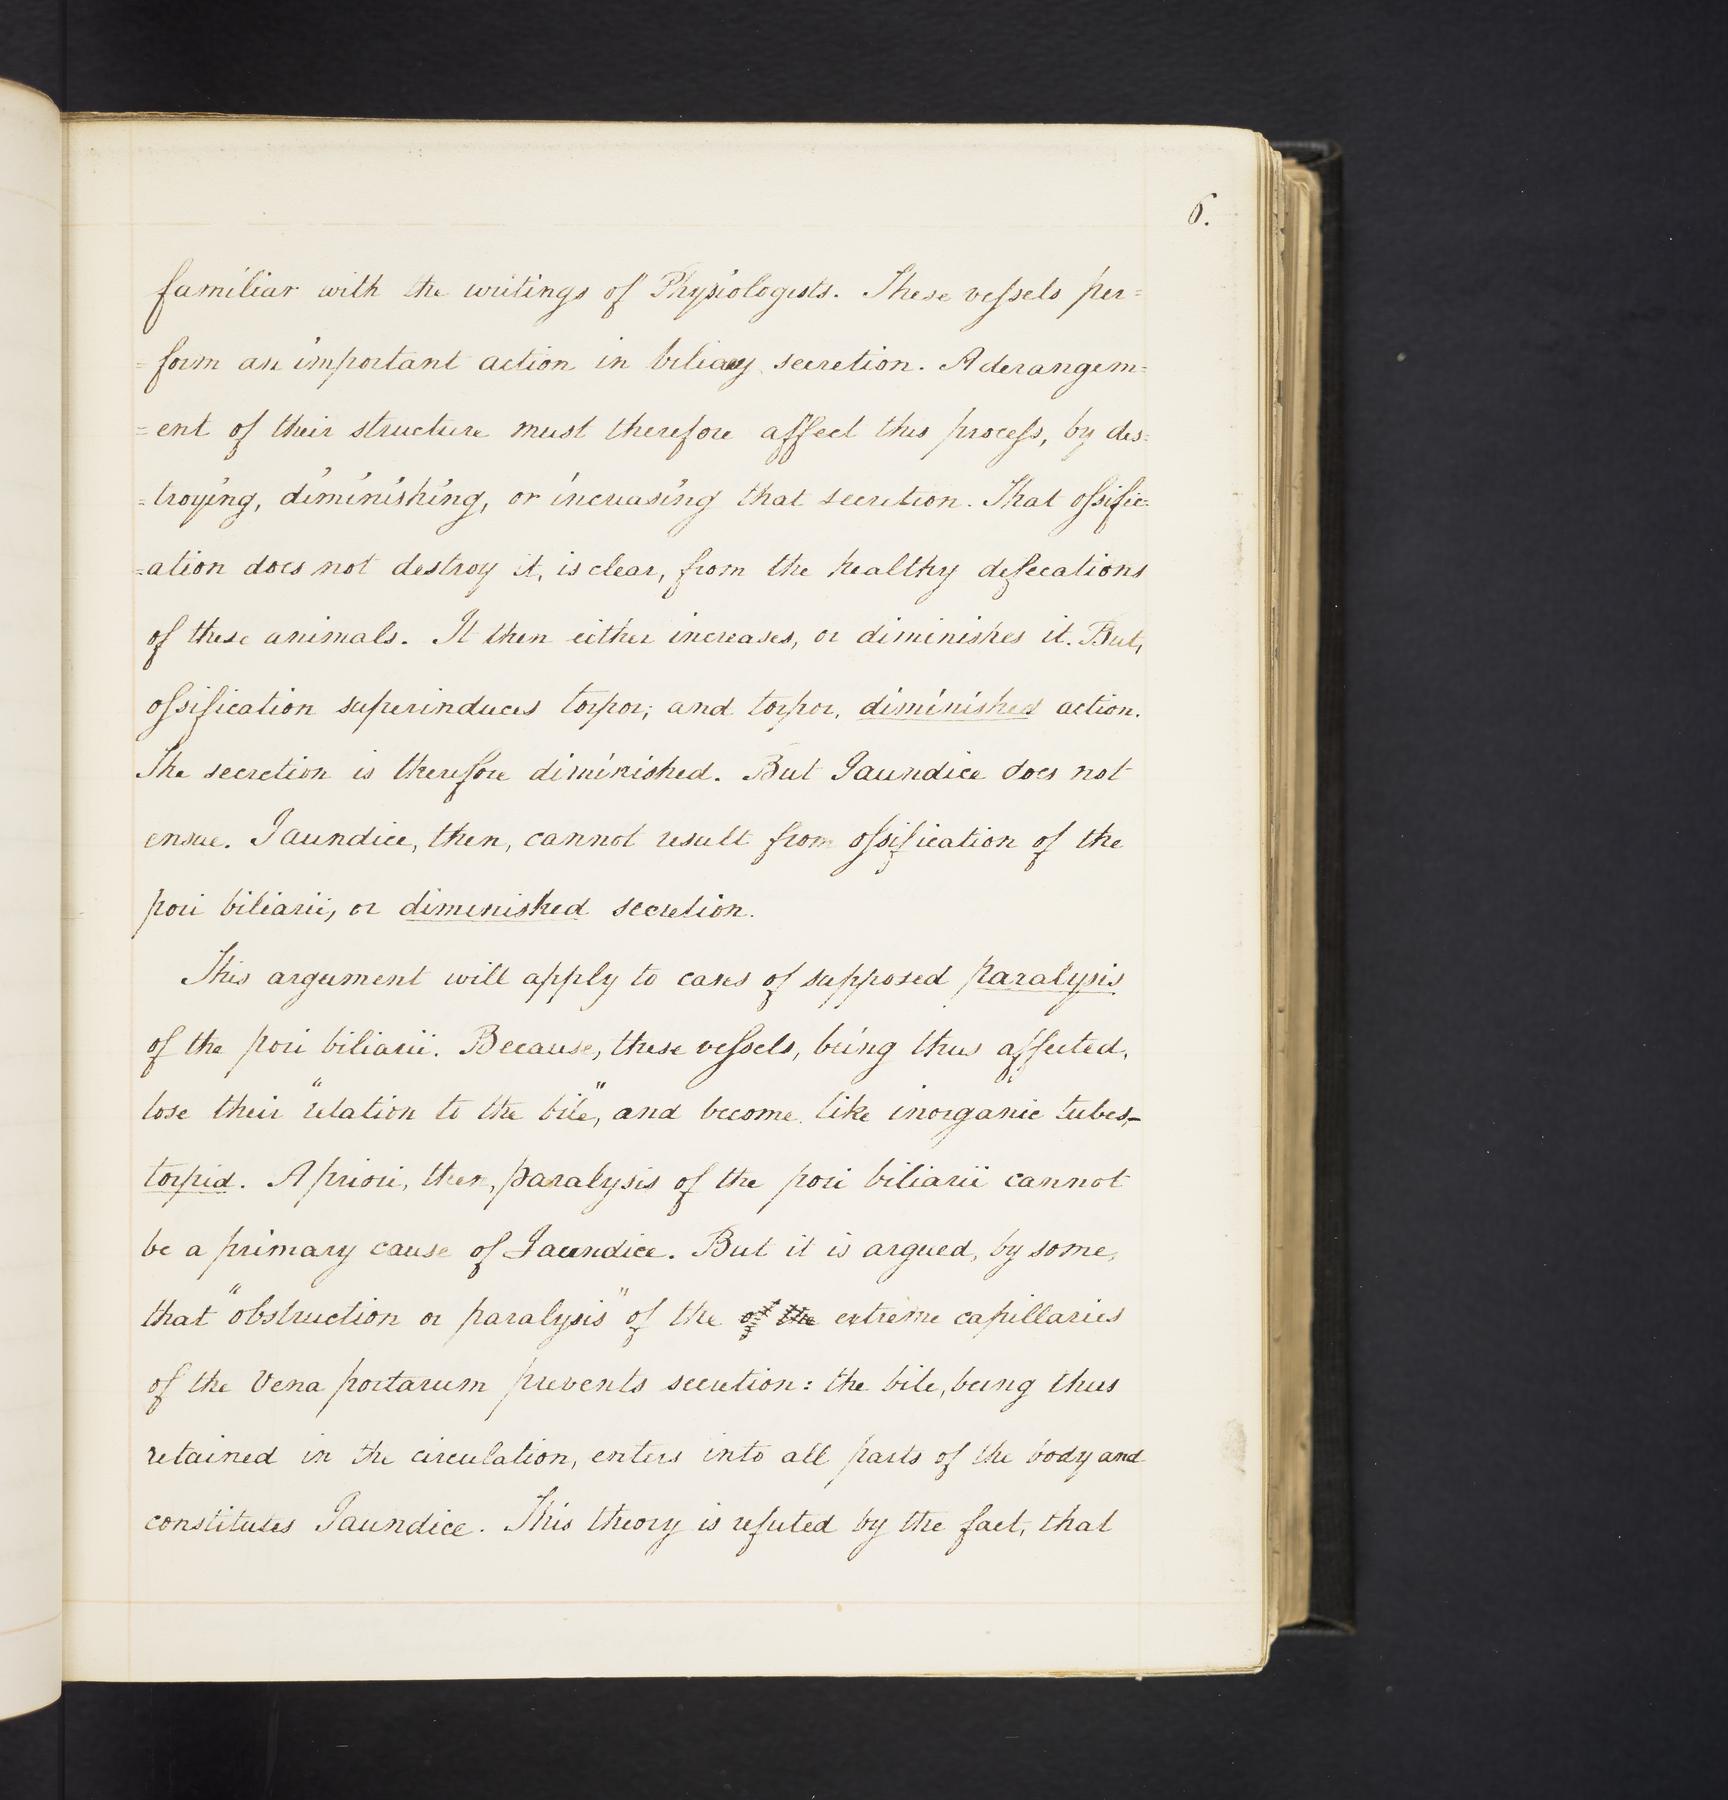 6.
familiar with the writings of Physiologists. These vessels per=
=form an important action in biliary secretion. A derangem=
=ent of their structure must therefore affect this process, by des=
=troying, diminishing, or increasing that secretion. That ossific=
=ation does not destroy it, is clear, from the healthy defecations
of these animals. It then either increases, or diminishes it. But,
ossification superinduces torpor; and torpor, diminished action.
The secretion is therefore diminished. But Jaundice does not
ensue. Jaundice, then, cannot result from ossification of the
pori biliarii, or diminished secretion.
This argument will apply to cases of supposed paralysis
of the pori biliarii. Because, these vessels, being thus affected,
lose their "relation to the bile", and become like inorganic tubes,—
torpid. A priori, then, paralysis of the pori biliarii cannot
be a primary cause of Jaundice. But it is argued, by some,
that "obstruction or paralysis" of the of the extreme capillaries
of the Vena portarum prevents secretion: the bile, being thus
retained in the circulation, enters into all parts of the body and
constitutes Jaundice. This theory is refuted by the fact, that